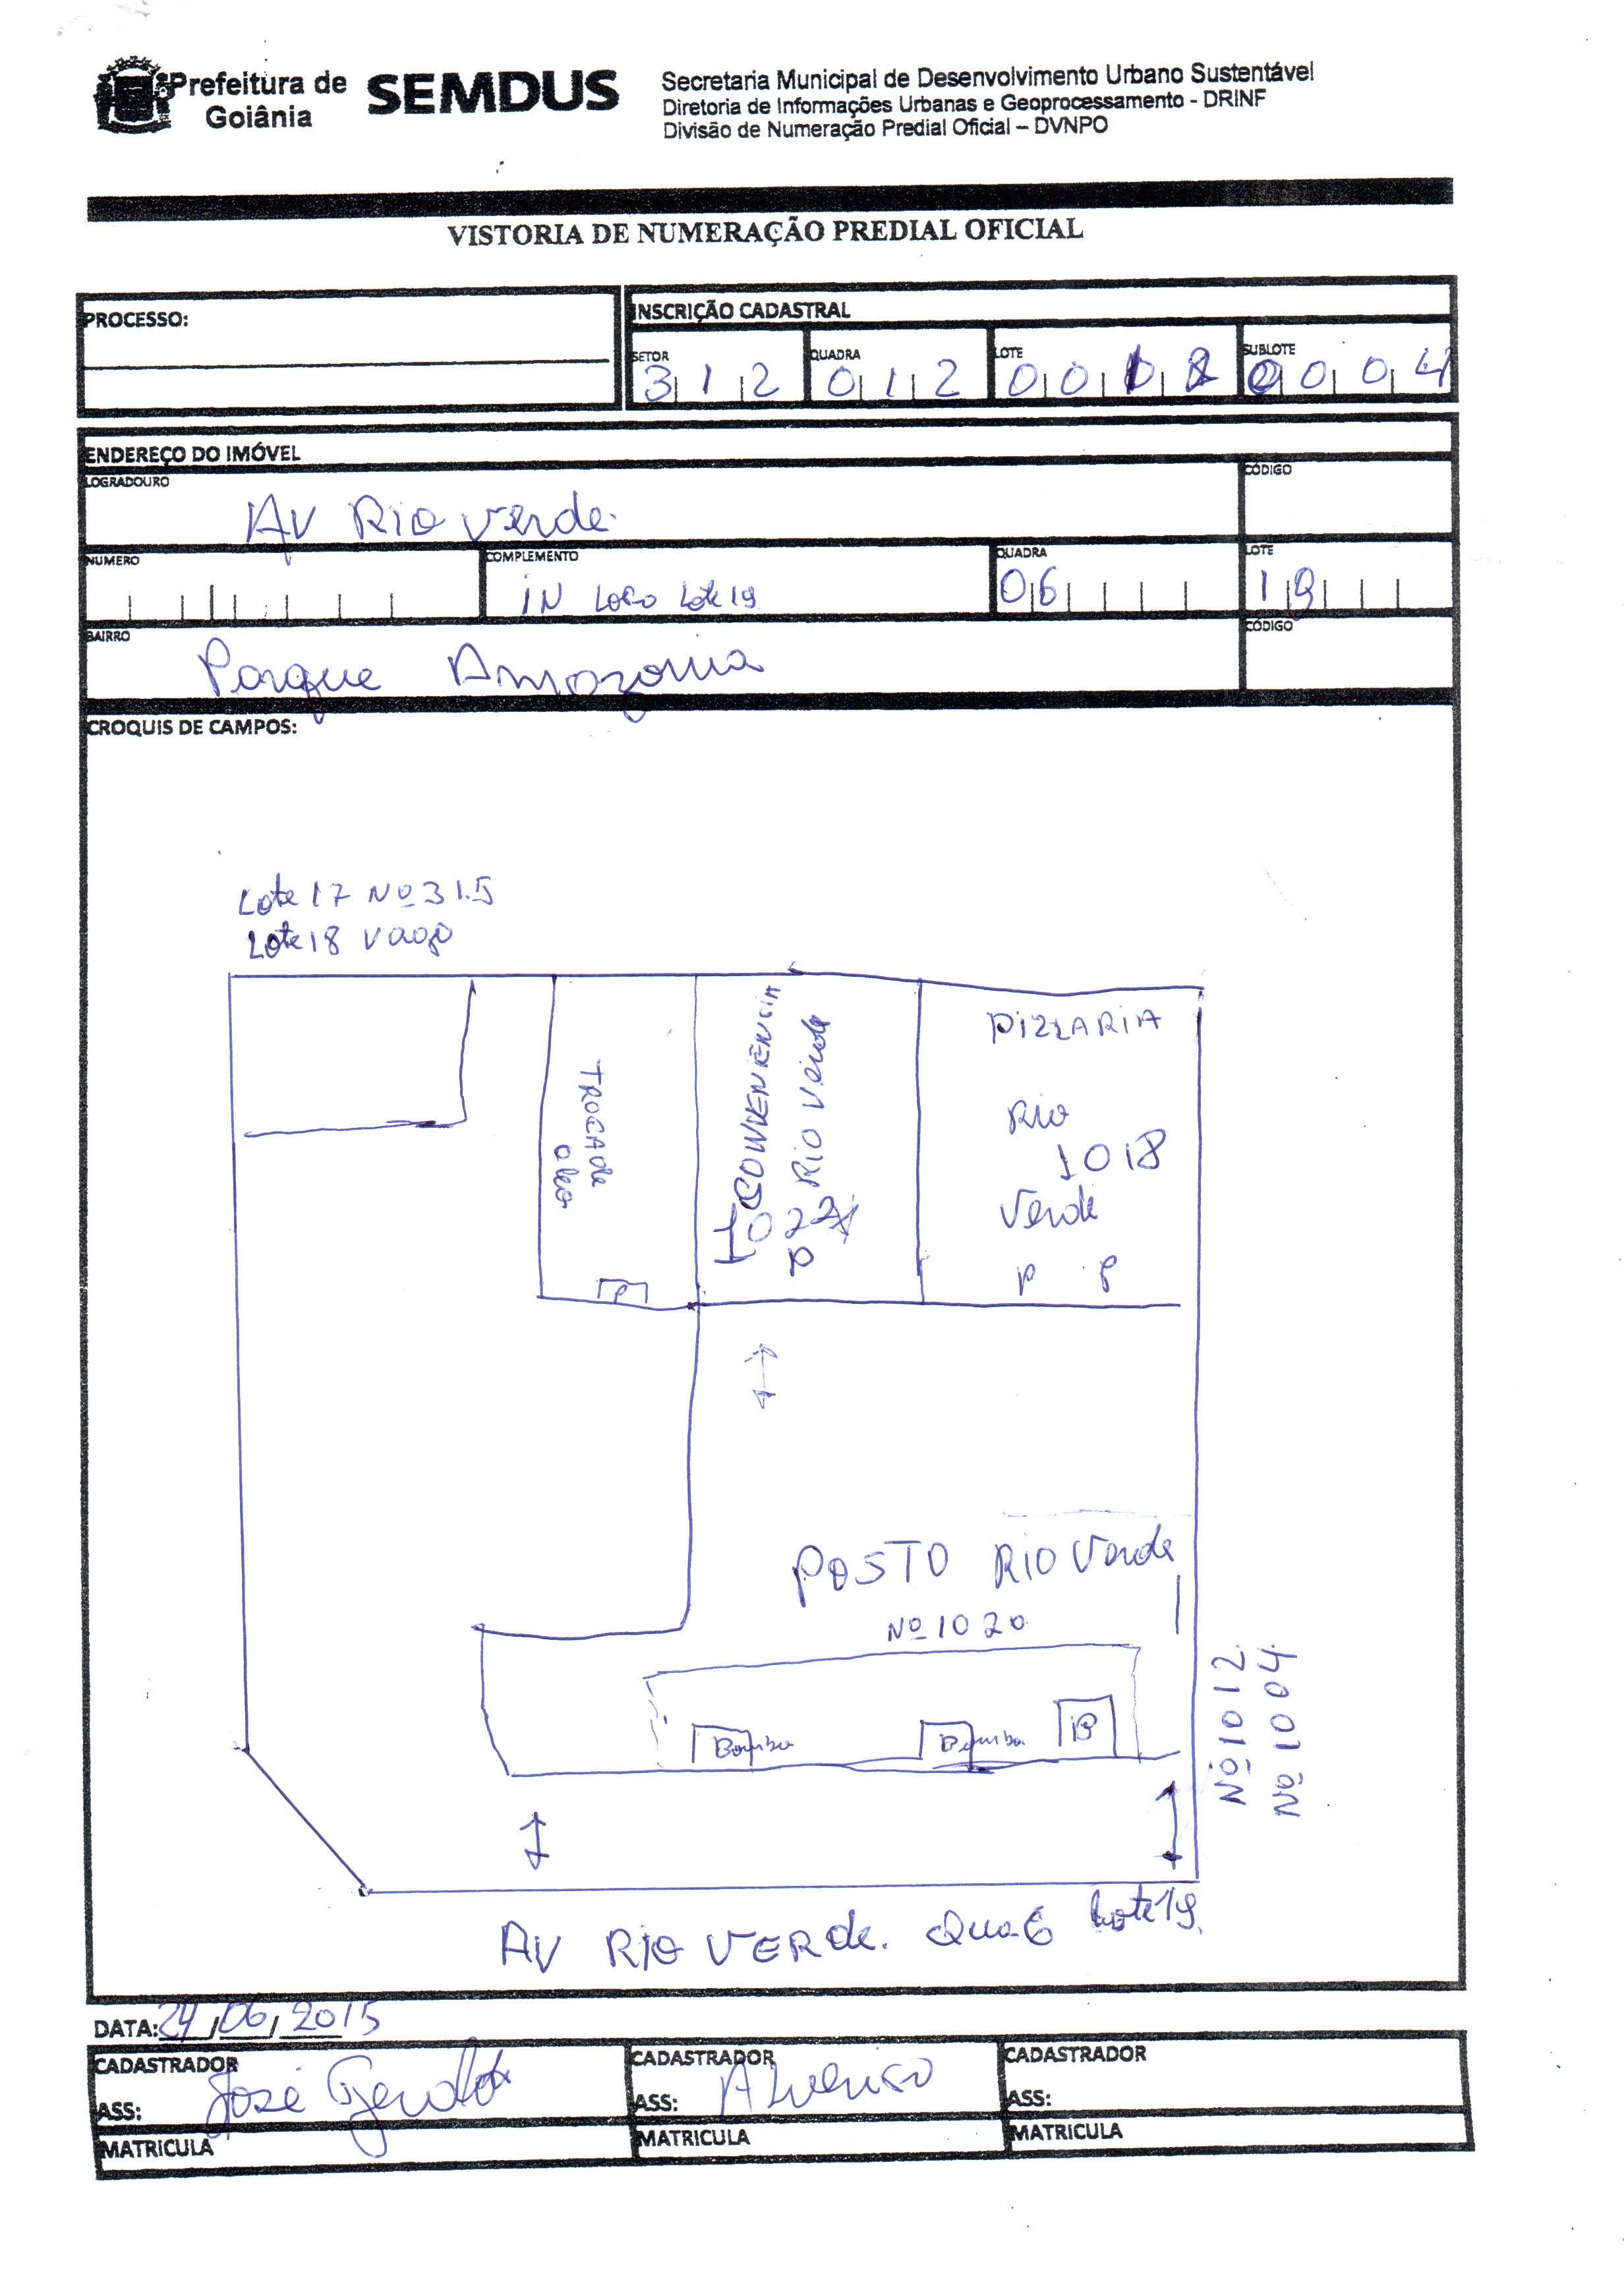 Prefeitura de Goiânia
SEMDUS
Secretaria Municipal de Desenvolvimento Urbano Sustentável
Diretoria de Informações Urbanas e Geoprocessamento - DRINF
Divisão de Numeração Predial Oficial – DVNPO
VISTORIA DE NUMERAÇÃO PREDIAL OFICIAL
PROCESSO:
INSCRIÇÃO CADASTRAL
SETOR QUADRA LOTE SUBLOTE
312 012 0018 0004
ENDEREÇO DO IMÓVEL
LOGRADOURO CÓDIGO
AV Rio Verde
NUMERO COMPLEMENTO QUADRA LOTE
IN Loco Lote 19 06 19
BAIRRO CÓDIGO
Parque Amazonia
CROQUIS DE CAMPOS:
Lote 17 Nº 315
Lote 18 Vago
TROCA de
oleo
P
CONVENENCIA
Rio Verde
1022
P
PIZZARIA
Rio
1018
Verde
P P
POSTO RIO Verde
Nº 1020
Bomba Bomba B
Nº 1012
Nº 1004
AV RIO VERde. Qua 6 Lote 19.
DATA: 24/06/2015
CADASTRADOR CADASTRADOR CADASTRADOR
ASS: José Geraldo ASS: ASS:
MATRICULA MATRICULA MATRICULA